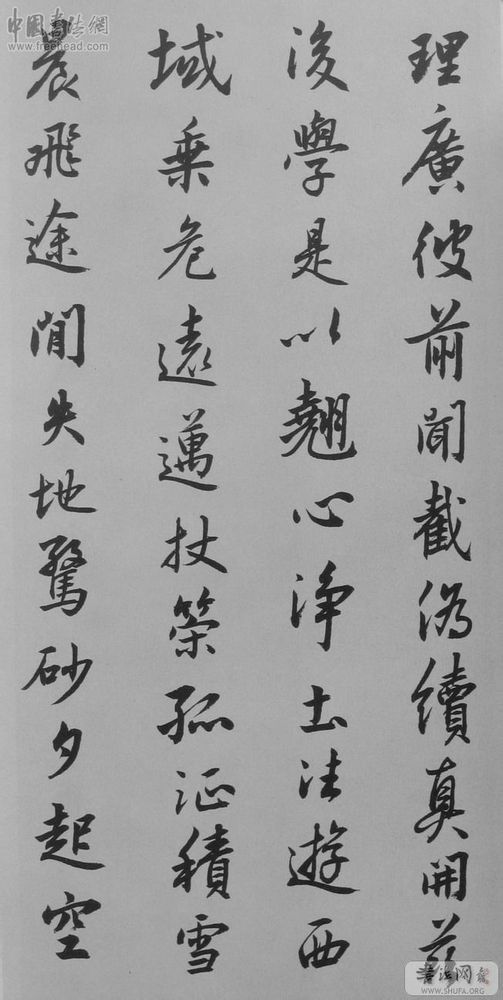 理廣彼前聞截偽續真開茲
後學是以翹心淨土法遊西
域乘危遠邁杖策孤征積雪
晨飛途間失地驚砂夕起空
中国书法網
www.freehead.com
书法网
WWW.SHUFA.ORG